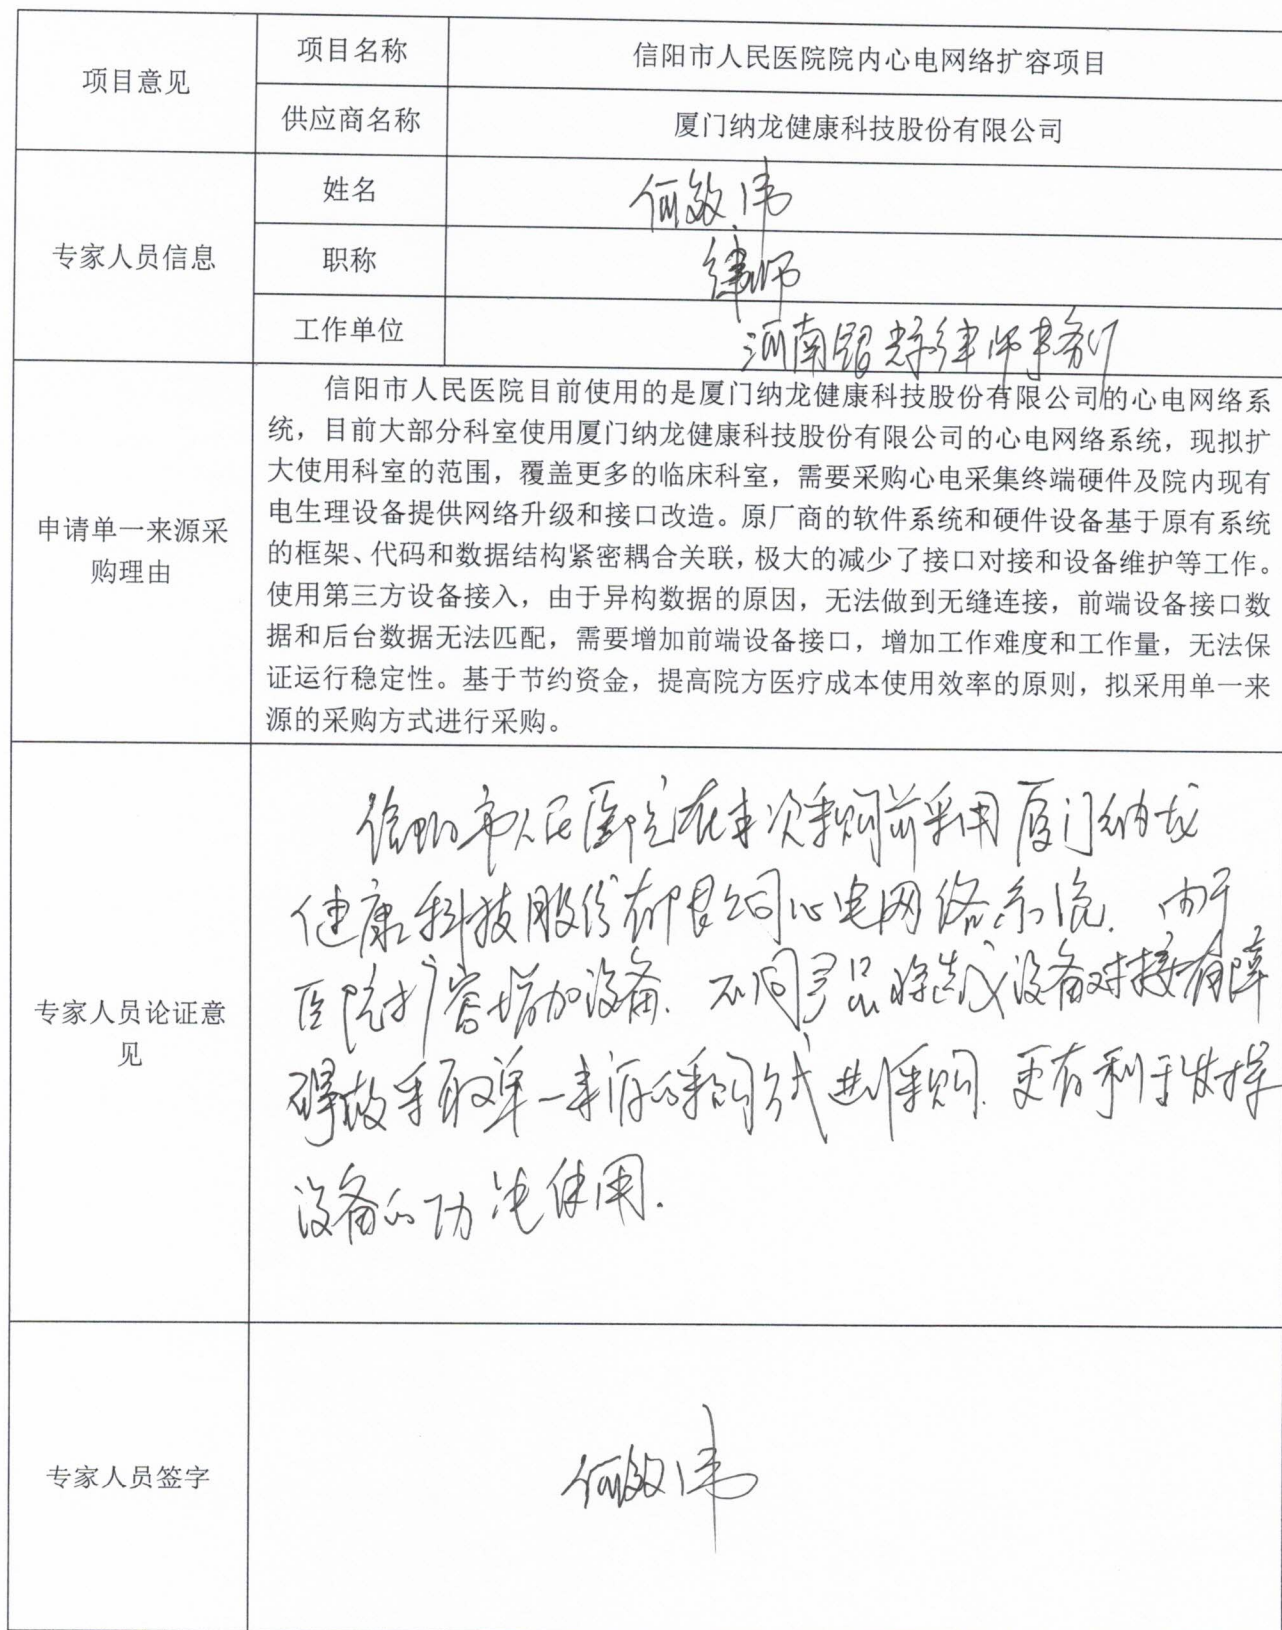 项目意见
项目名称
信阳市人民医院院内心电网络扩容项目
供应商名称
厦门纳龙健康科技股份有限公司
专家人员信息
姓名
何敏伟
职称
律师
工作单位
河南 律师事务所
申请单一来源采
购理由
信阳市人民医院目前使用的是厦门纳龙健康科技股份有限公司的心电网络系
统，目前大部分科室使用厦门纳龙健康科技股份有限公司的心电网络系统，现拟扩
大使用科室的范围，覆盖更多的临床科室，需要采购心电采集终端硬件及院内现有
电生理设备提供网络升级和接口改造。原厂商的软件系统和硬件设备基于原有系统
的框架、代码和数据结构紧密耦合关联，极大的减少了接口对接和设备维护等工作。
使用第三方设备接入，由于异构数据的原因，无法做到无缝连接，前端设备接口数
据和后台数据无法匹配，需要增加前端设备接口，增加工作难度和工作量，无法保
证运行稳定性。基于节约资金，提高院方医疗成本使用效率的原则，拟采用单一来
源的采购方式进行采购。
专家人员论证意
见
信阳市人民医院在本次采购前采用厦门纳龙
健康科技股份有限公司心电网络系统.由于
医院扩容增加设备.不同产品将造成设备对接有障
碍故采取单一来源的采购方式进行采购.更有利于发挥
设备的功能使用.
专家人员签字
何敏伟